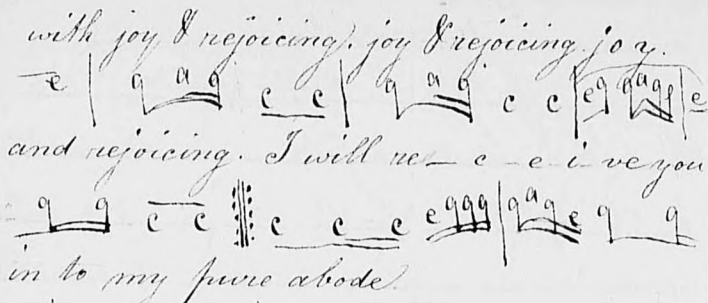 with joy & rejoicing. joy & rejoicing. joy.
e | g a g c c | g a g c c | e g g a g e | e
and rejoicing. I will re_ c _ e _ i _ ve you
g g c c c c c e g g g | g a g e g g
in to my pure abode.